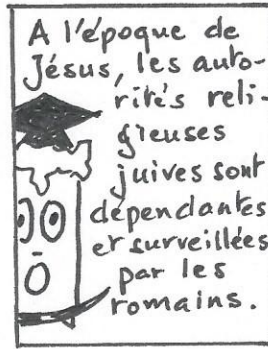 A l'époque de
Jésus, les auto-
rités reli-
gieuses
juives sont
dépendantes
et surveillées
par les
romains.